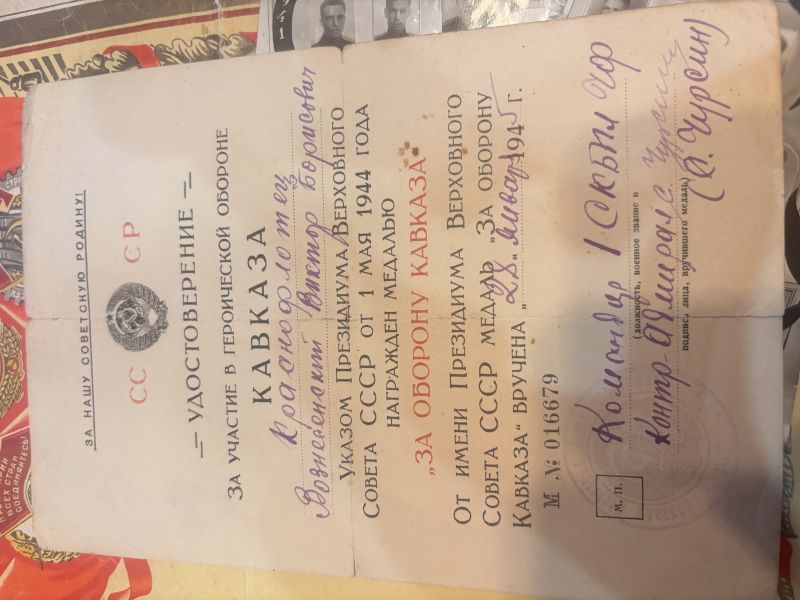 ЗА НАШУ СОВЕТСКУЮ РОДИНУ!
СС СР
УДОСТОВЕРЕНИЕ
ЗА УЧАСТИЕ В ГЕРОИЧЕСКОЙ ОБОРОНЕ
КАВКАЗА
Краснофлотец
Вознесенский Виктор Борисович
УКАЗОМ ПРЕЗИДИУМА ВЕРХОВНОГО
СОВЕТА СССР ОТ 1 МАЯ 1944 ГОДА
НАГРАЖДЕН МЕДАЛЬЮ
„ЗА ОБОРОНУ КАВКАЗА"
ОТ ИМЕНИ ПРЕЗИДИУМА ВЕРХОВНОГО
СОВЕТА СССР МЕДАЛЬ „ЗА ОБОРОНУ
КАВКАЗА" ВРУЧЕНА „28" января 1945 г.
М № 016679
Командир 1 СКБПЛ ЧФ
(должность, военное звание и
Контр-Адмирал
подпись лица, вручившего медаль)
М. П.
(П. Чурсин)
ВСЕХ СТРАН
СОЕДИНЯЙТЕСЬ!